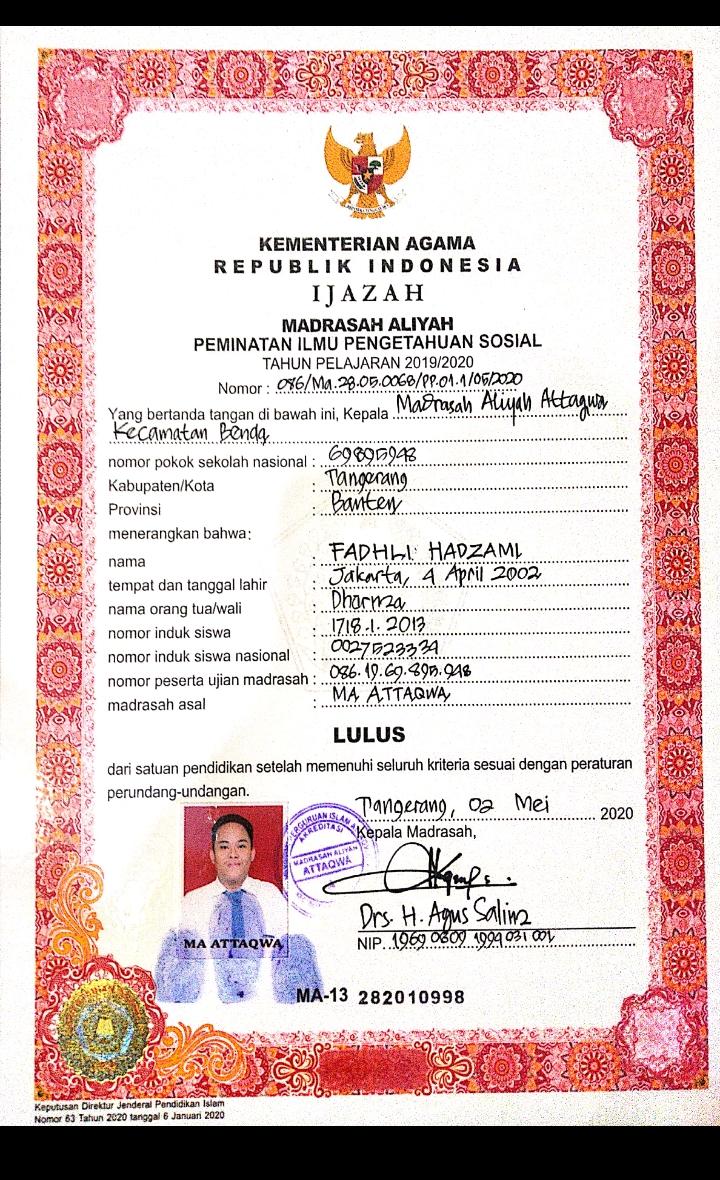 KEMENTERIAN AGAMA
REPUBLIK INDONESIA
IJAZAH
MADRASAH ALIYAH
PEMINATAN ILMU PENGETAHUAN SOSIAL
TAHUN PELAJARAN 2019/2020
Nomor : 086/Ma.28.05.0068/PP.01.1/05/2020
Yang bertanda tangan di bawah ini, Kepala Madrasah Aliyah Attaqwa
Kecamatan Benda
nomor pokok sekolah nasional : 69895948
Kabupaten/Kota : Tangerang
Provinsi : Banten
menerangkan bahwa:
nama : FADHLI HADZAMI
tempat dan tanggal lahir : Jakarta, 4 April 2002
nama orang tua/wali : Dharma
nomor induk siswa : 1718.1.2013
nomor induk siswa nasional : 0027523334
nomor peserta ujian madrasah : 086.19.69.895.948
madrasah asal : MA ATTAQWA
LULUS
dari satuan pendidikan setelah memenuhi seluruh kriteria sesuai dengan peraturan
perundang-undangan.
Tangerang, 02 Mei 2020
Kepala Madrasah,
PERGURUAN ISLAM
AKREDITASI
MADRASAH ALIYAH
ATTAQWA
Drs. H. Agus Salim
NIP. 1969 0809 1994 031 001
MA ATTAQWA
MA-13 282010998
Keputusan Direktur Jenderal Pendidikan Islam
Nomor 63 Tahun 2020 tanggal 6 Januari 2020